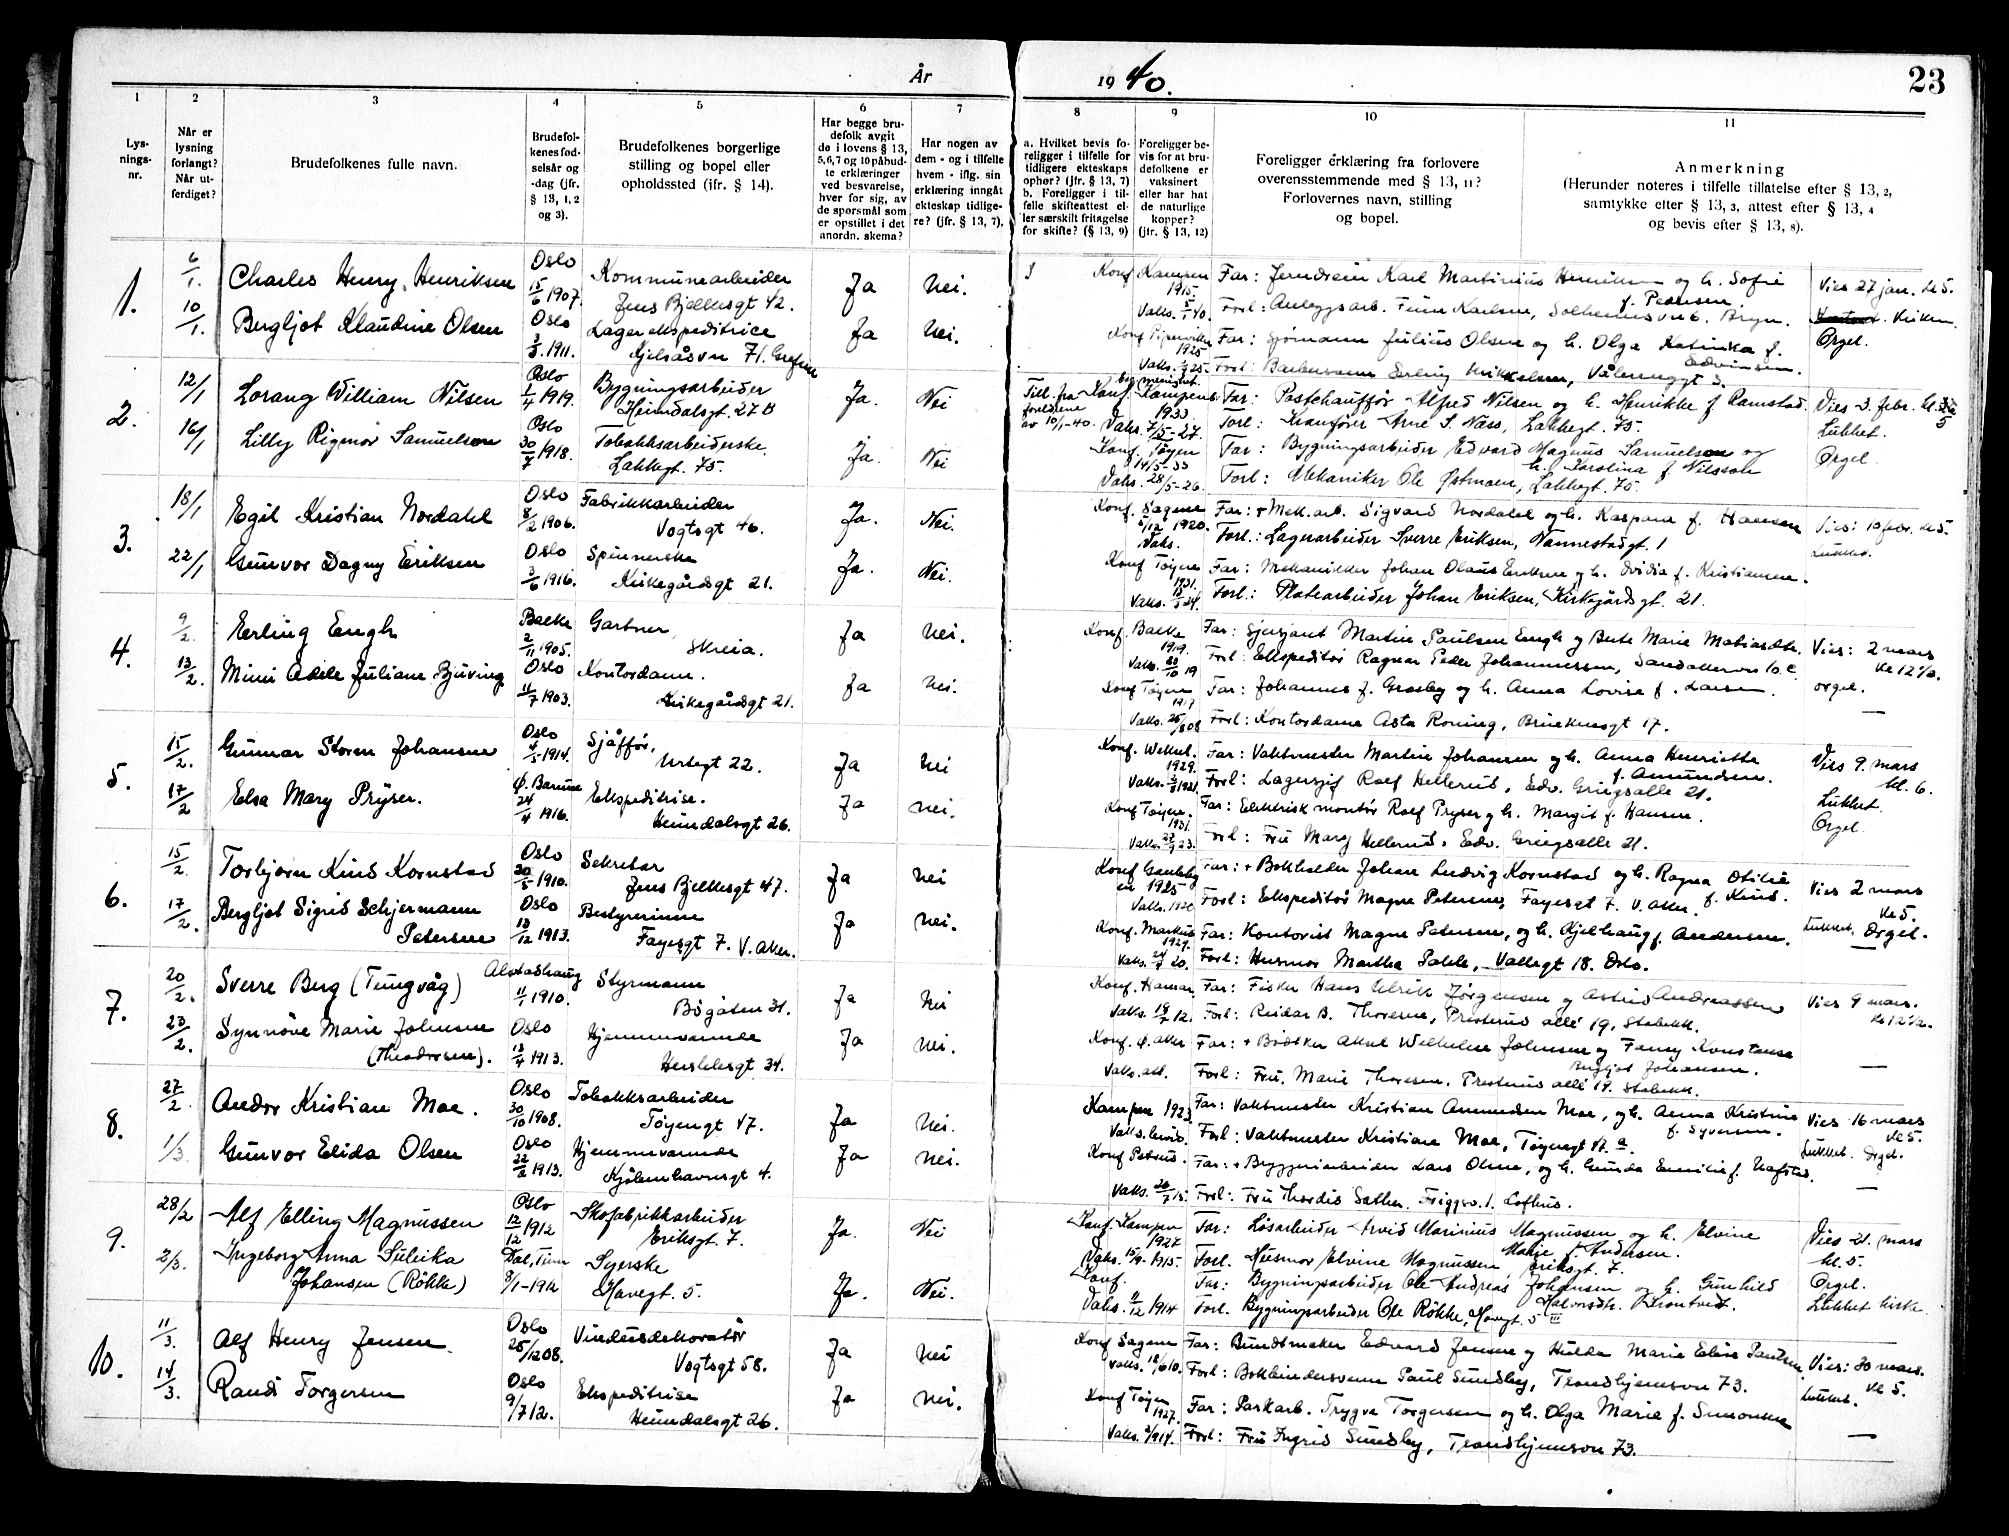 År 1940.
23
1 2 3 4 5 6 7 8 9 10 11
Lysningsnr.
Når er lysning forlangt? Når utferdiget?
Brudefolkenes fulle navn.
Brudefolkenes fødselsår og -dag (jfr. § 13, 1, 2 og 3).
Brudefolkenes borgerlige stilling og bopel eller opholdssted (jfr. § 14).
Har begge brudefolk avgit de i lovens § 13, 5,6,7 og 10 påbudte erklæringer ved besvarelse, hver for sig, av de spørsmål som er opstillet i det anordn. skema?
Har nogen av dem - og i tilfelle hvem - iflg. sin erklæring inngått ekteskap tidligere? (jfr. § 13, 7).
a. Hvilket bevis foreligger i tilfelle for tidligere ekteskaps ophør? (jfr. § 13, 7)
b. Foreligger i tilfelle skifteattest eller særskilt fritagelse for skifte? (§ 13, 9)
Foreligger bevis for at brudefolkene er vaksinert eller har hat de naturlige kopper? (jfr. § 13, 12)
Foreligger erklæring fra forlovere overensstemmende med § 13, 11? Forlovernes navn, stilling og bopel.
Anmerkning
(Herunder noteres i tilfelle tillatelse efter § 13, 2, samtykke efter § 13, 3, attest efter § 13, 4 og bevis efter § 13, 8).
1. 6/1. Charles Henry Henriksen Oslo 15/6 1907. Kommunearbeider Jens Bjelkesgt 42. Ja Nei. Konf Kampen 1915. Vaks. 5/1 40. Far: Jerndreier Karl Martinius Henriksen og h. Sofie f. Pedersen. Forl: Anleggsarb. Finn Karlsen, Solheimsvn 6. Bryn. Vies 27 jan. kl 5. Kirken. Orgel.
10/1. Bergljot Klaudine Olsen Oslo 1911. Lagerekspeditrice Kjelsåsvn 71. Grefsen Ja Nei. Konf Piperviken 1925 Far: Sjømann Julius Olsen og h. Olga Katinka f. Edvinsen. Forl: Erling Mikkelsen, Vålerenggt 3.
2. 12/1 Lorang William Nilsen Oslo 1/4 1919. Bygningsarbeider Heimdalsgt. 27 B Ja. Nei Till. fra foreldrene av 10/1-40. Konf. Kampens menighet. 1933 Vaks. 7/5-27. Far: Postchauffør Alfred Nilsen og h. Henrikke f. Ramstad. Forl: Kranfører Arne S. Næss, Lakkegt. 75. Vies 3. febr. kl. 5 Lukket. Orgel.
16/1 Lilly Rigmor Samuelson Oslo 30/7 1918. Tobakksarbeiderske. Lakkegt. 75. Ja. Nei Konf. Tøyen 14/5-33 Vaks. 28/5-26. Far: Bygningsarbeider Edvard Magnus Samuelson og h. Karolina f. Nilsson Forl: Mekaniker Ole Østmoen, Lakkegt. 75.
3. 18/1 Egil Kristian Nordahl Oslo 8/2 1906. Fabrikkarbeider Vogtsgt 46. Ja. Nei. Konf. Sagene 1920. Vaks. Far: + Mek.arb. Sigvard Nordahl og h. Kaspara f. Hansen Forl.: Lagerarbeider Sverre Eriksen, Nannestadgt. 1 Vies: 10 febr. kl 5. Lukket.
22/1 Gunvor Dagny Eriksen Oslo 3/6 1916. Spinnerske Kirkegårdsgt 21. Ja. Nei. Konf Tøyen 1931. Vaks. Far: Mekanikker Johan Olaus Eriksen og h. Ovidia f. Kristiansen. Forl: Platearbeider Johan Eriksen, Kirkegårdsgt. 21.
4. 9/2. Erling Engh Balke 2/11 1905. Gartner, Skreia. Ja Nei. Konf. Balke 1919. Vaks. 20/10 19 Far: Sjersjant Martin Paulsen Engh og Berte Marie Matiasdtr. Forl: Ekspeditør Ragnar Peder Johannessen, Sandakerven 10 c. Vies: 2 mars kl 12 1/2. orgel.
13/2. Mimi Adele Juliane Bjuving Oslo 11/7 1903. Kontordame. Kirkegårdsgt 21. Ja Nei. Konf Tøyen 1917 Vaks. 26/8 08 Far: Johannes f. Grosby og h. Anna Lovise f. Larsen. Forl: Kontordame Asta Roning, Brinkensgt 17.
5. 15/2. Gunnar Storm Johansen Oslo 4/5 1914. Sjåffør, Urtegt 22. Ja Nei Konf. 1929. Vaks. 1921. Far: Vaktmester Martin Johansen og h. Anna Henriette f. Amundsen. Forl: Lagersjef Rolf Hellerud, Edv. Griegsalle 21. Vies 9. mars kl. 6. Lukket. Orgel.
17/2 Elsa Mary Pryser. Ø. Bærum 24/4 1916. Ekspeditrise. Heimdalsgt 26. Ja nei. Konf Tøyen. 1931. Vaks. 23. Far: Elektrisk montør Rolf Pryser og h. Margit f. Hansen. Forl: Fru Mary Hellerud, Edv. Griegsalle 21.
6. 15/2. Torbjørn Knud Kornstad Oslo 20/5 1910. Sekretær Jens Bjelkesgt 47. Ja Nei Konf Gamlebyen 1925 Vaks. 1920 Far: + Bokholder Johan Ludvig Kornstad og h. Ragna Otilie f. Knud. Forl: Ekspeditør Magne Petersen, Fayesgt 7. V. Aker. Vies 2 mars kl 5. Lukket. Orgel.
17/2. Bergljot Sigrid Schjermann Petersen Oslo 13/12 1913. Bestyrerinne Fayesgt 7. V. Aker. Ja Nei. Konf. Markus 1927. Vaks. 20. Far: Kontorist Magne Petersen, og h. Kjelhaug f. Andersen. Forl: Husmor Martha Pahle, Vallegt 18. Oslo.
7. 20/2. Sverre Berg (Tungvåg) Alstadhaug 11/1 1910. Styrmann Bøgaten 31. Ja Nei Konf. Hamar. Vaks. 19/7 12. Far: Fisker Hans Ulrik Jørgensen og Astrid Andreassen Forl: Reidar B. Thoresen, Presterud allé 19, Stabekk. Vies 9 mars. kl 12 1/2.
23/2. Synnöve Marie Johnsen (Theodorsen). Oslo 13/4 1913. Hjemmeværende Herslebsgt 34. Ja Nei. Konf. Ø. Aker Vaks. att. Far: + Bødtker Aksel Wilhelm Johnsen og Fanny Konstanse Bergljot Johansen. Forl: Fru. Marie Thoresen. Presterud allé 19. Stabekk.
8. 27/2. Andor Kristian Moe. Oslo 30/10 1908. Tobakksarbeider Tøyengt 47. Ja Nei. Kampen 1923 Far: Vaktmester Kristian Amundsen Moe, og h. Anna Kristine f. Syversen. Forl: Vaktmester Kristian Moe, Tøyengt 47 a. Vies 16 mars kl 5. Lukket. Orgel.
1/3. Gunvor Elida Olsen Oslo 22/2 1913. Hjemmeværende Kjøbenhavnsgt 4. Ja Nei. Konf Petrus. Vaks. 26/7 15. Far: + Bryggeriarbeider Lars Olsen, og h. Gunda Emilie f. Hafstad. Forl: Fru Thordis Sæther. Friggvn. 1. Lofthus.
9. 28/2 Alf Elling Magnussen Oslo 12/12 1912 Skofabrikkarbeider Eriksgt. 7. Ja. Nei Konf. Kampen 1927 Vaks. 15/9-1915. Far: Løsarbeider Arvid Marinius Magnussen og h. Elvine Marie f. Andersen. Forl. Husmor Elvine Magnussen Eriksgt. 7. Vies 21. mars kl. 5. Orgel. Lukket kirke.
2/3. Ingeborg Anna Suleika Johansen (Rökke) Dal, Tinn 8/1-1912 Syerske Havegt. 5. Ja. Nei. Konf. Vaks. 11/12 1914 Far: Bygningsarbeider Ole Andreas Johansen og h. Gunhild Halvorsdtr. Brontvedt. Forl. Bygningsarbeider Ole Rökke, Havegt. 5 III
10. 11/3. Alf Henry Jensen Oslo 25/12 08. Vindusdekoratør Vogtsgt 58. Ja Nei Konf Sagene Vaks. 18/6 10. Far: Buntmaker Edvard Jensen og Hulda Marie Elise Paulsen Forl: Bokbindersvenn Paul Sundby, Trondhjemsvn 73. Vies: 30 mars. kl 5. Lukket.
14/3. Randi Torgersen Oslo 9/7 12. Ekspeditrise Heimdalsgt 26. Ja Nei. Konf Tøyen 1927. Vaks. 1914. Far: Parkarb. Trygve Torgersen og h. Olga Marie f. Simonsen Forl: Fru Ingrid Sundby, Trondhjemsvn 73.